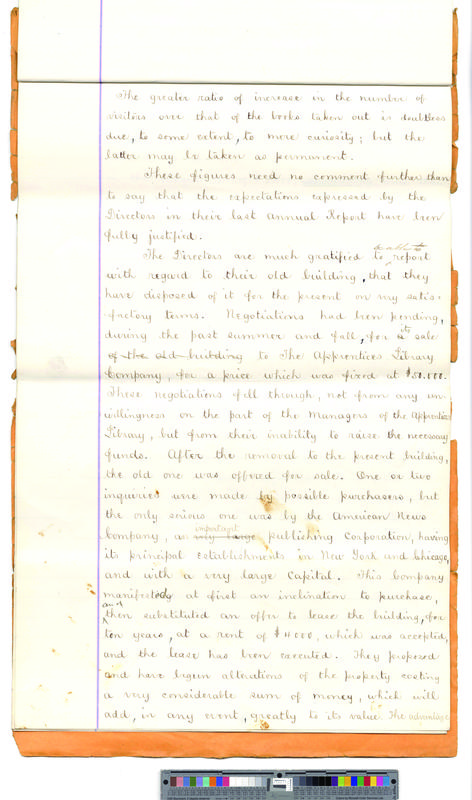 The greater ratio of increase in the number of
visitors over that of the books taken out is doubtless
due, to some extent, to more curiosity; but the
latter may be taken as permanent.
These figures need no comment further than
to say that the expectations expressed by the
Directors in their last Annual Report have been
fully justified.
be able to
The Directors are much gratified to report
with regard to their old building, that they
have disposed of it for the present on very satis-
factory terms. Negotiations had been pending,
during the past summer and fall, for its sale
of the old building to The Apprentices Library
Company, for a price which was fixed at $50.000.
These negotiations fell through, not from any un-
willingness on the part of the Managers of the Apprentices
Library, but from their inability to raise the necessary
funds. After the removal to the present building,
the old one was offered for sale. One or two
inquiries were made by possible purchasers, but
the only serious one was by the American News
important
Company, a very large publishing Corporation, having
its principal Establishments in New York and Chicago,
and with a very large Capital. This Company
manifested at first an inclination to purchase,
and
then substituted an offer to lease the building, for
ten years, at a rent of $4000, which was accepted,
and the lease has been executed. They proposed
and have begun alterations of the property costing
a very considerable sum of money, which will
add, in any event, greatly to its value. The advantage